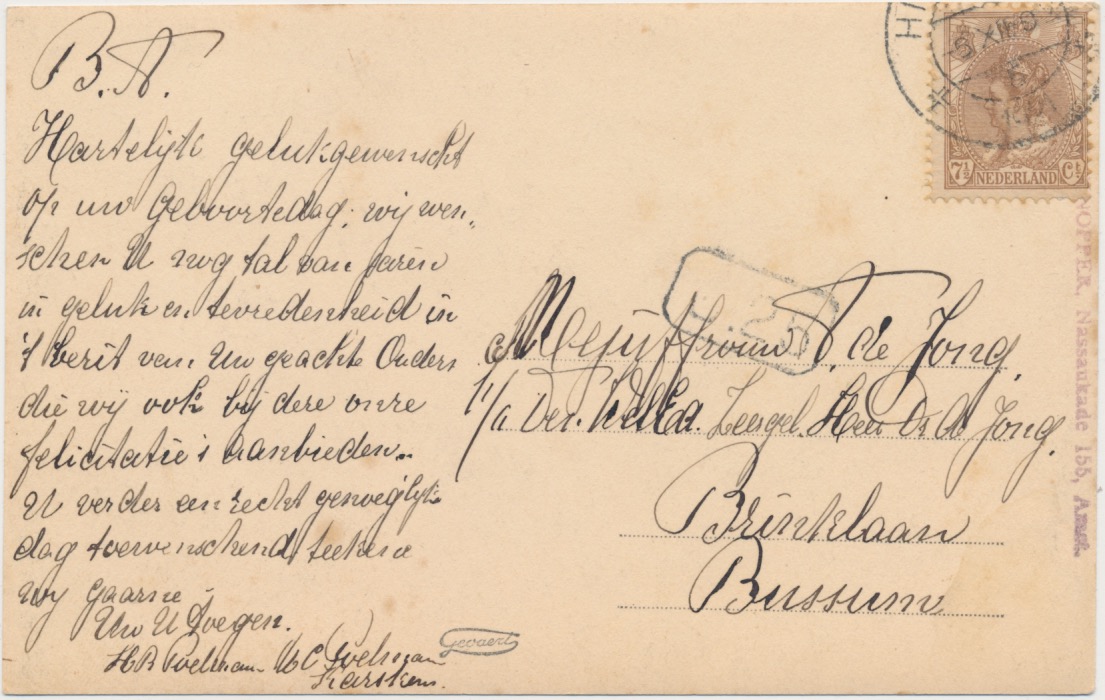 B. N.
Hartelijk gelukgewenscht
op uw geboortedag; wij wen„
schen U nog tal van jaren
in geluk en tevredenheid in
't bezit van Uw geachte Ouders
die wij ook bij deze onze
felicitatie's aanbieden.
U verder een recht genoeglijke
dag toewenschend, teekene
wij gaarne
Uw U
HB M C
Karskens.
Gevaert
H
7½ NEDERLAND Ct
H. 25
Mejuffrouw T. de Jong.
Wel Ed. Zeergel. Heer Ds de Jong.
Brinklaan
Bussum
NOPPER, Nassaukade 155, Amst.